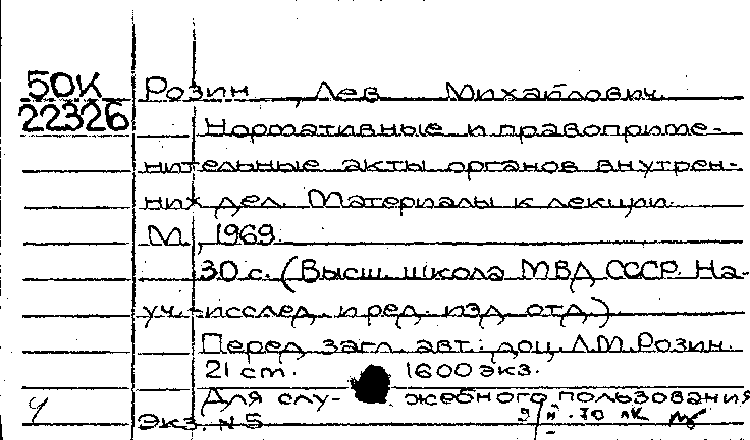 50К
22326
Розин, Лев Михайлович.
Нормативные и правоприме-
нительные акты органов внутрен-
них дел. Материалы к лекции.
М., 1969.
30 с. (Высш. школа МВД СССР. На-
уч.-исслед. и ред. изд. отд.)
Перед загл. авт.: доц. Л.М. Розин.
21 см. 1600 экз.
Для слу- жебного пользования
Экз. N 5